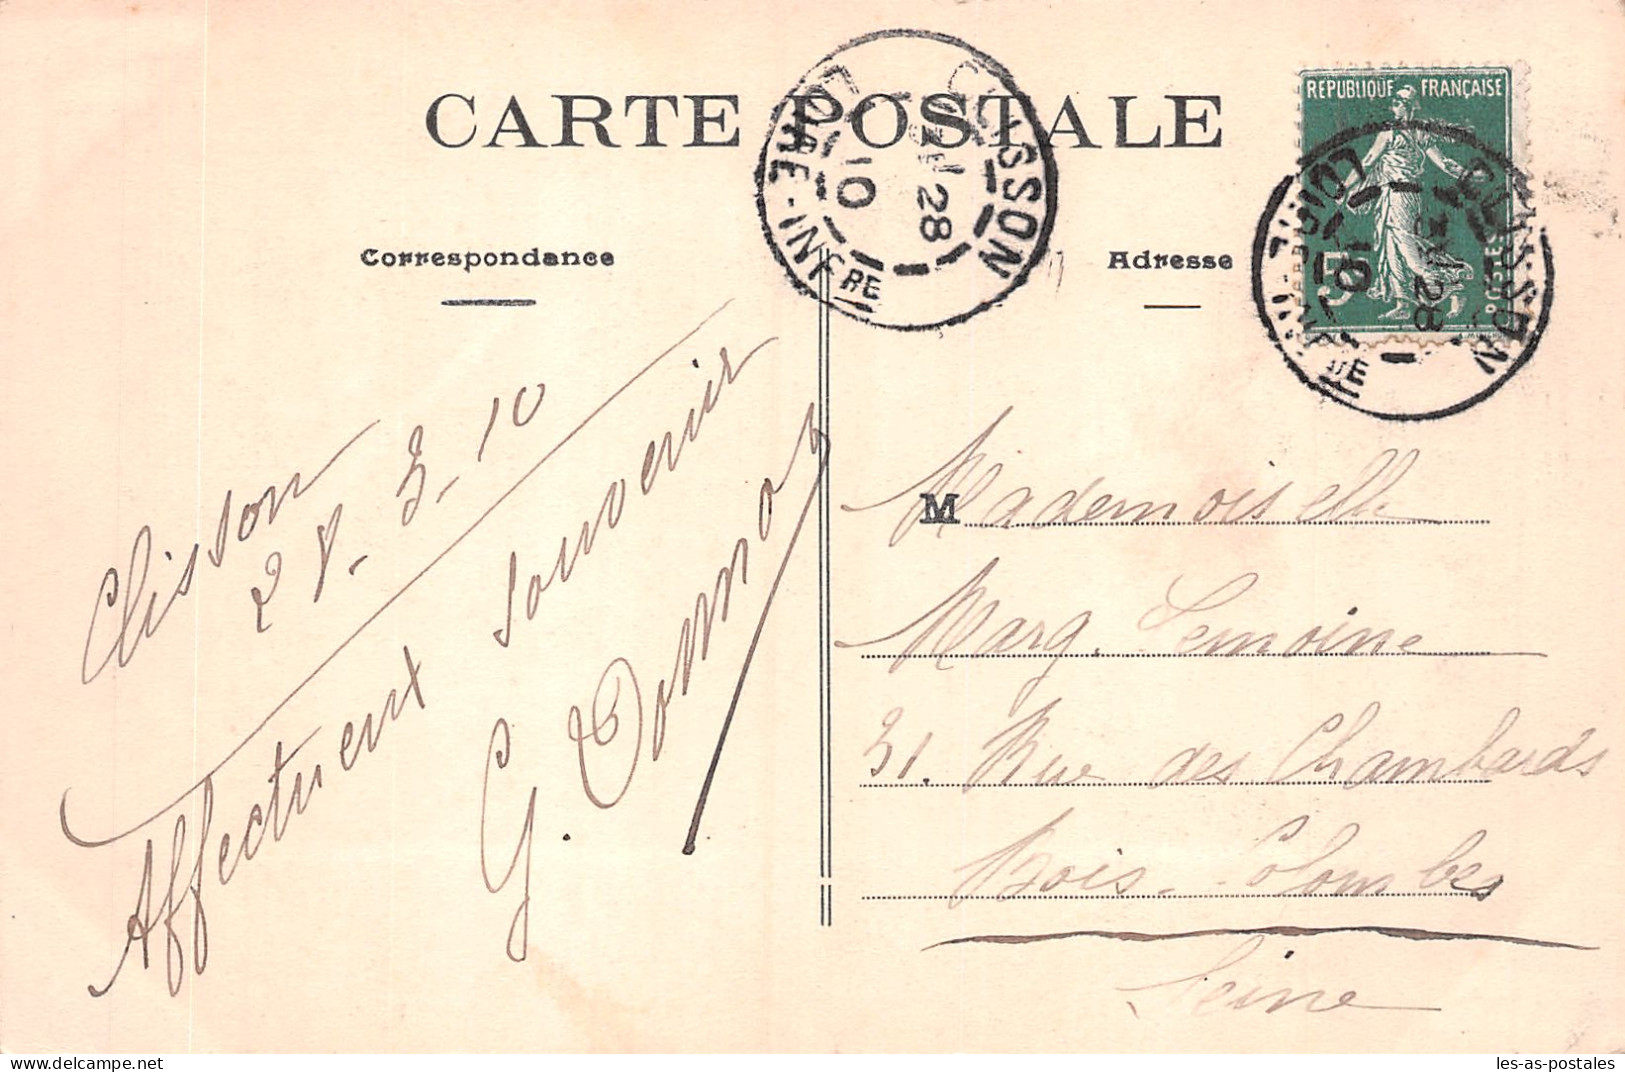 CARTE POSTALE
Correspondance
Adresse
CLISSON
28
10
LOIRE-INFRE
REPUBLIQUE FRANÇAISE
5
POSTES
CLISSON
28
10
LOIRE-INFRE
Clisson
28.3.10
Affectueux souvenir
G.
M Mademoiselle
Marg. Lemoine
31. Rue des Chambards
Bois-Colombes
Seine
les-as-postales
delcampe.net